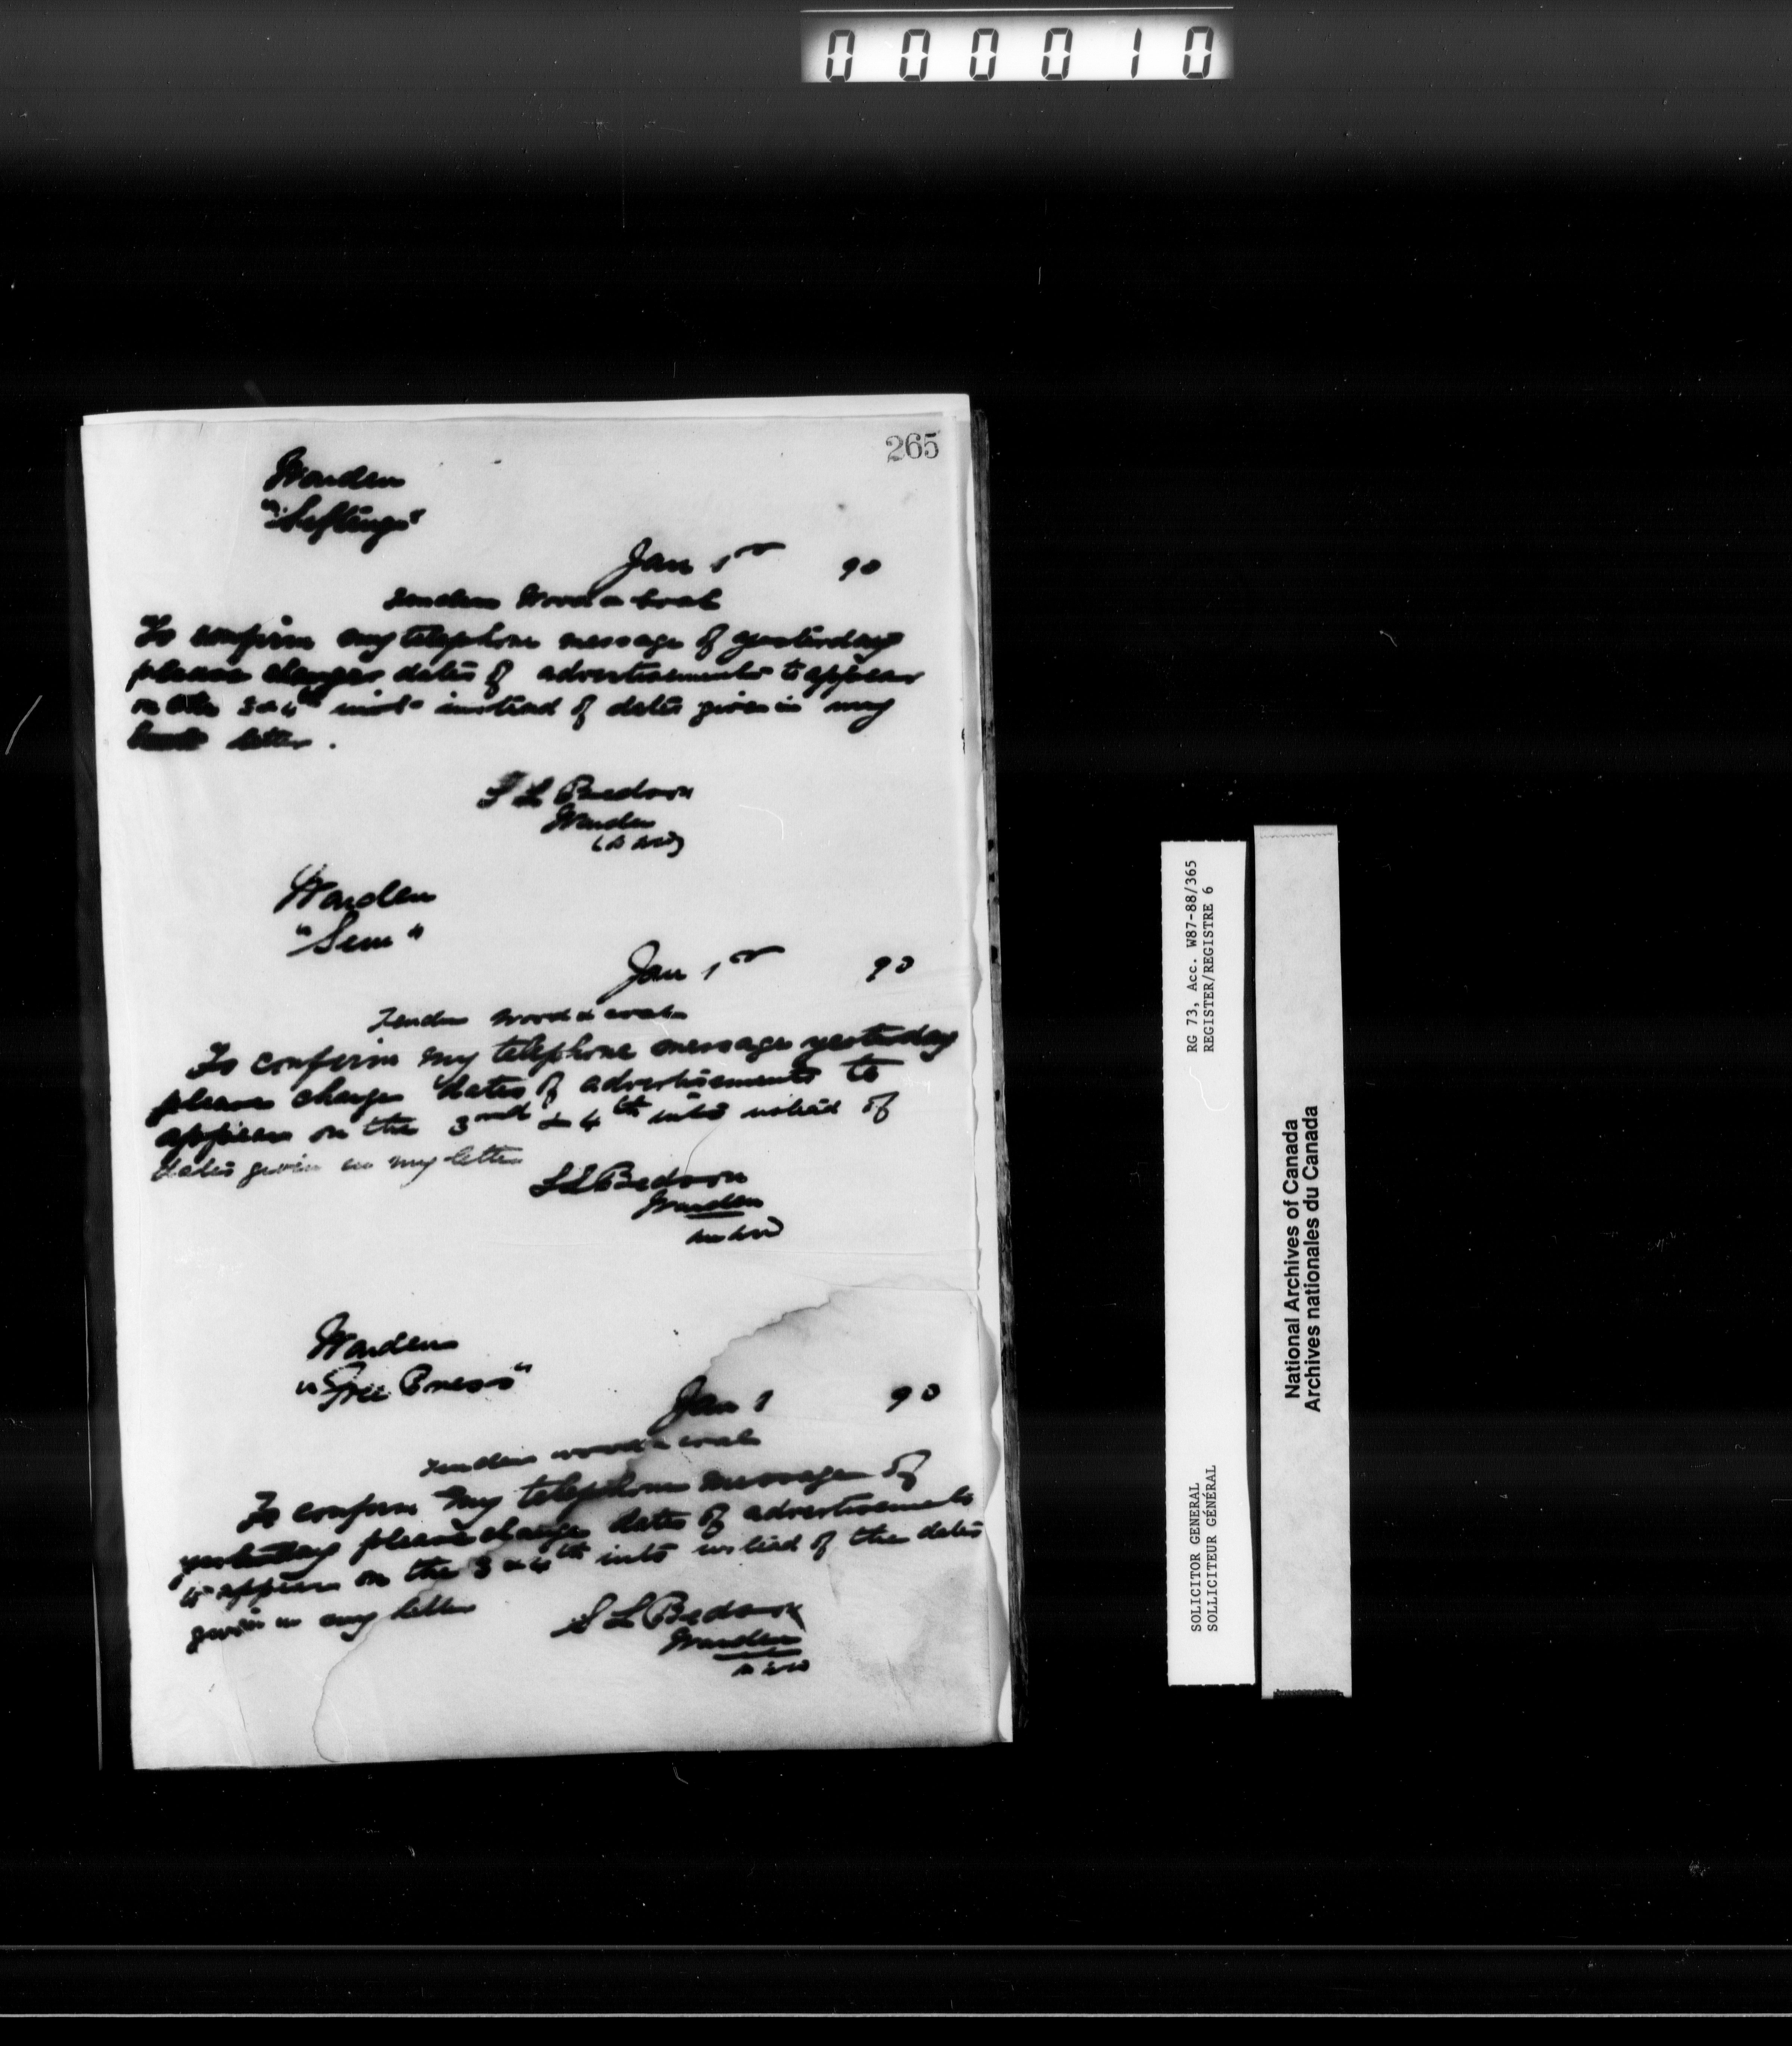 000010
265
Warden
"Siftings"
Jan 1st 90
Tenders Wood & Coal
To confirm my telephone message of yesterday
please change dates of advertisements to appear
on the 3 & 4th inst instead of dates given in my
letter.
S L Bedson
Warden
Warden
"Sun"
Jan 1st 90
Tenders Wood & coal
To confirm my telephone message yesterday
please change dates of advertisements to
appear on the 3rd & 4th inst instead of
dates given in my letter
S L Bedson
Warden
Warden
"Free Press"
Jan 1 90
Tenders wood & coal
To confirm my telephone message of
yesterday please change dates of advertisements
to appear on the 3 & 4th inst instead of the dates
given in my letter
S L Bedson
Warden
RG 73, Acc. W87-88/365
REGISTER/REGISTRE 6
SOLICITOR GENERAL
SOLLICITEUR GÉNÉRAL
National Archives of Canada
Archives nationales du Canada